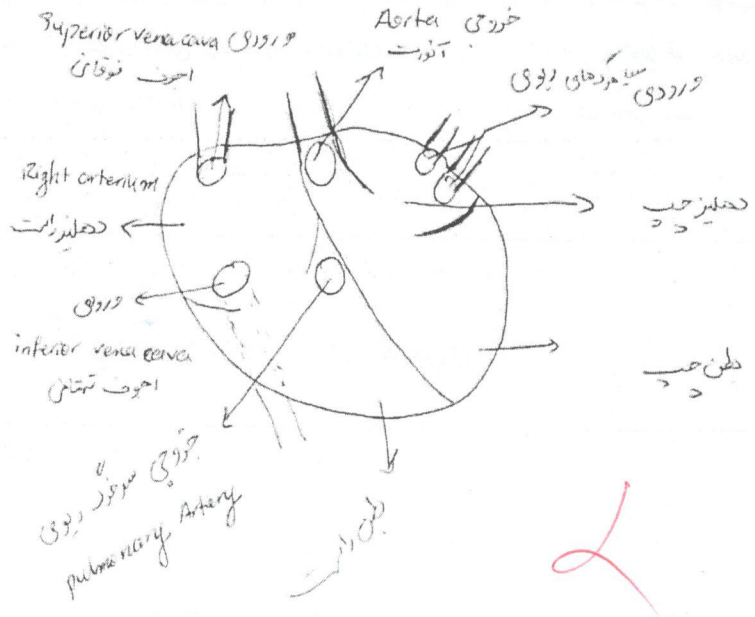 Superior vena cava ورودی
اجوف فوقانی
Aorta خروجی
آئورت
ورودی سیاهرگهای ریوی
Right arterium
دهلیز راست
دهلیز چپ
ورودی
inferior vena cava
اجوف تحتانی
بطن چپ
خروجی سرخرگ ریوی
pulmonary Artery
بطن راست